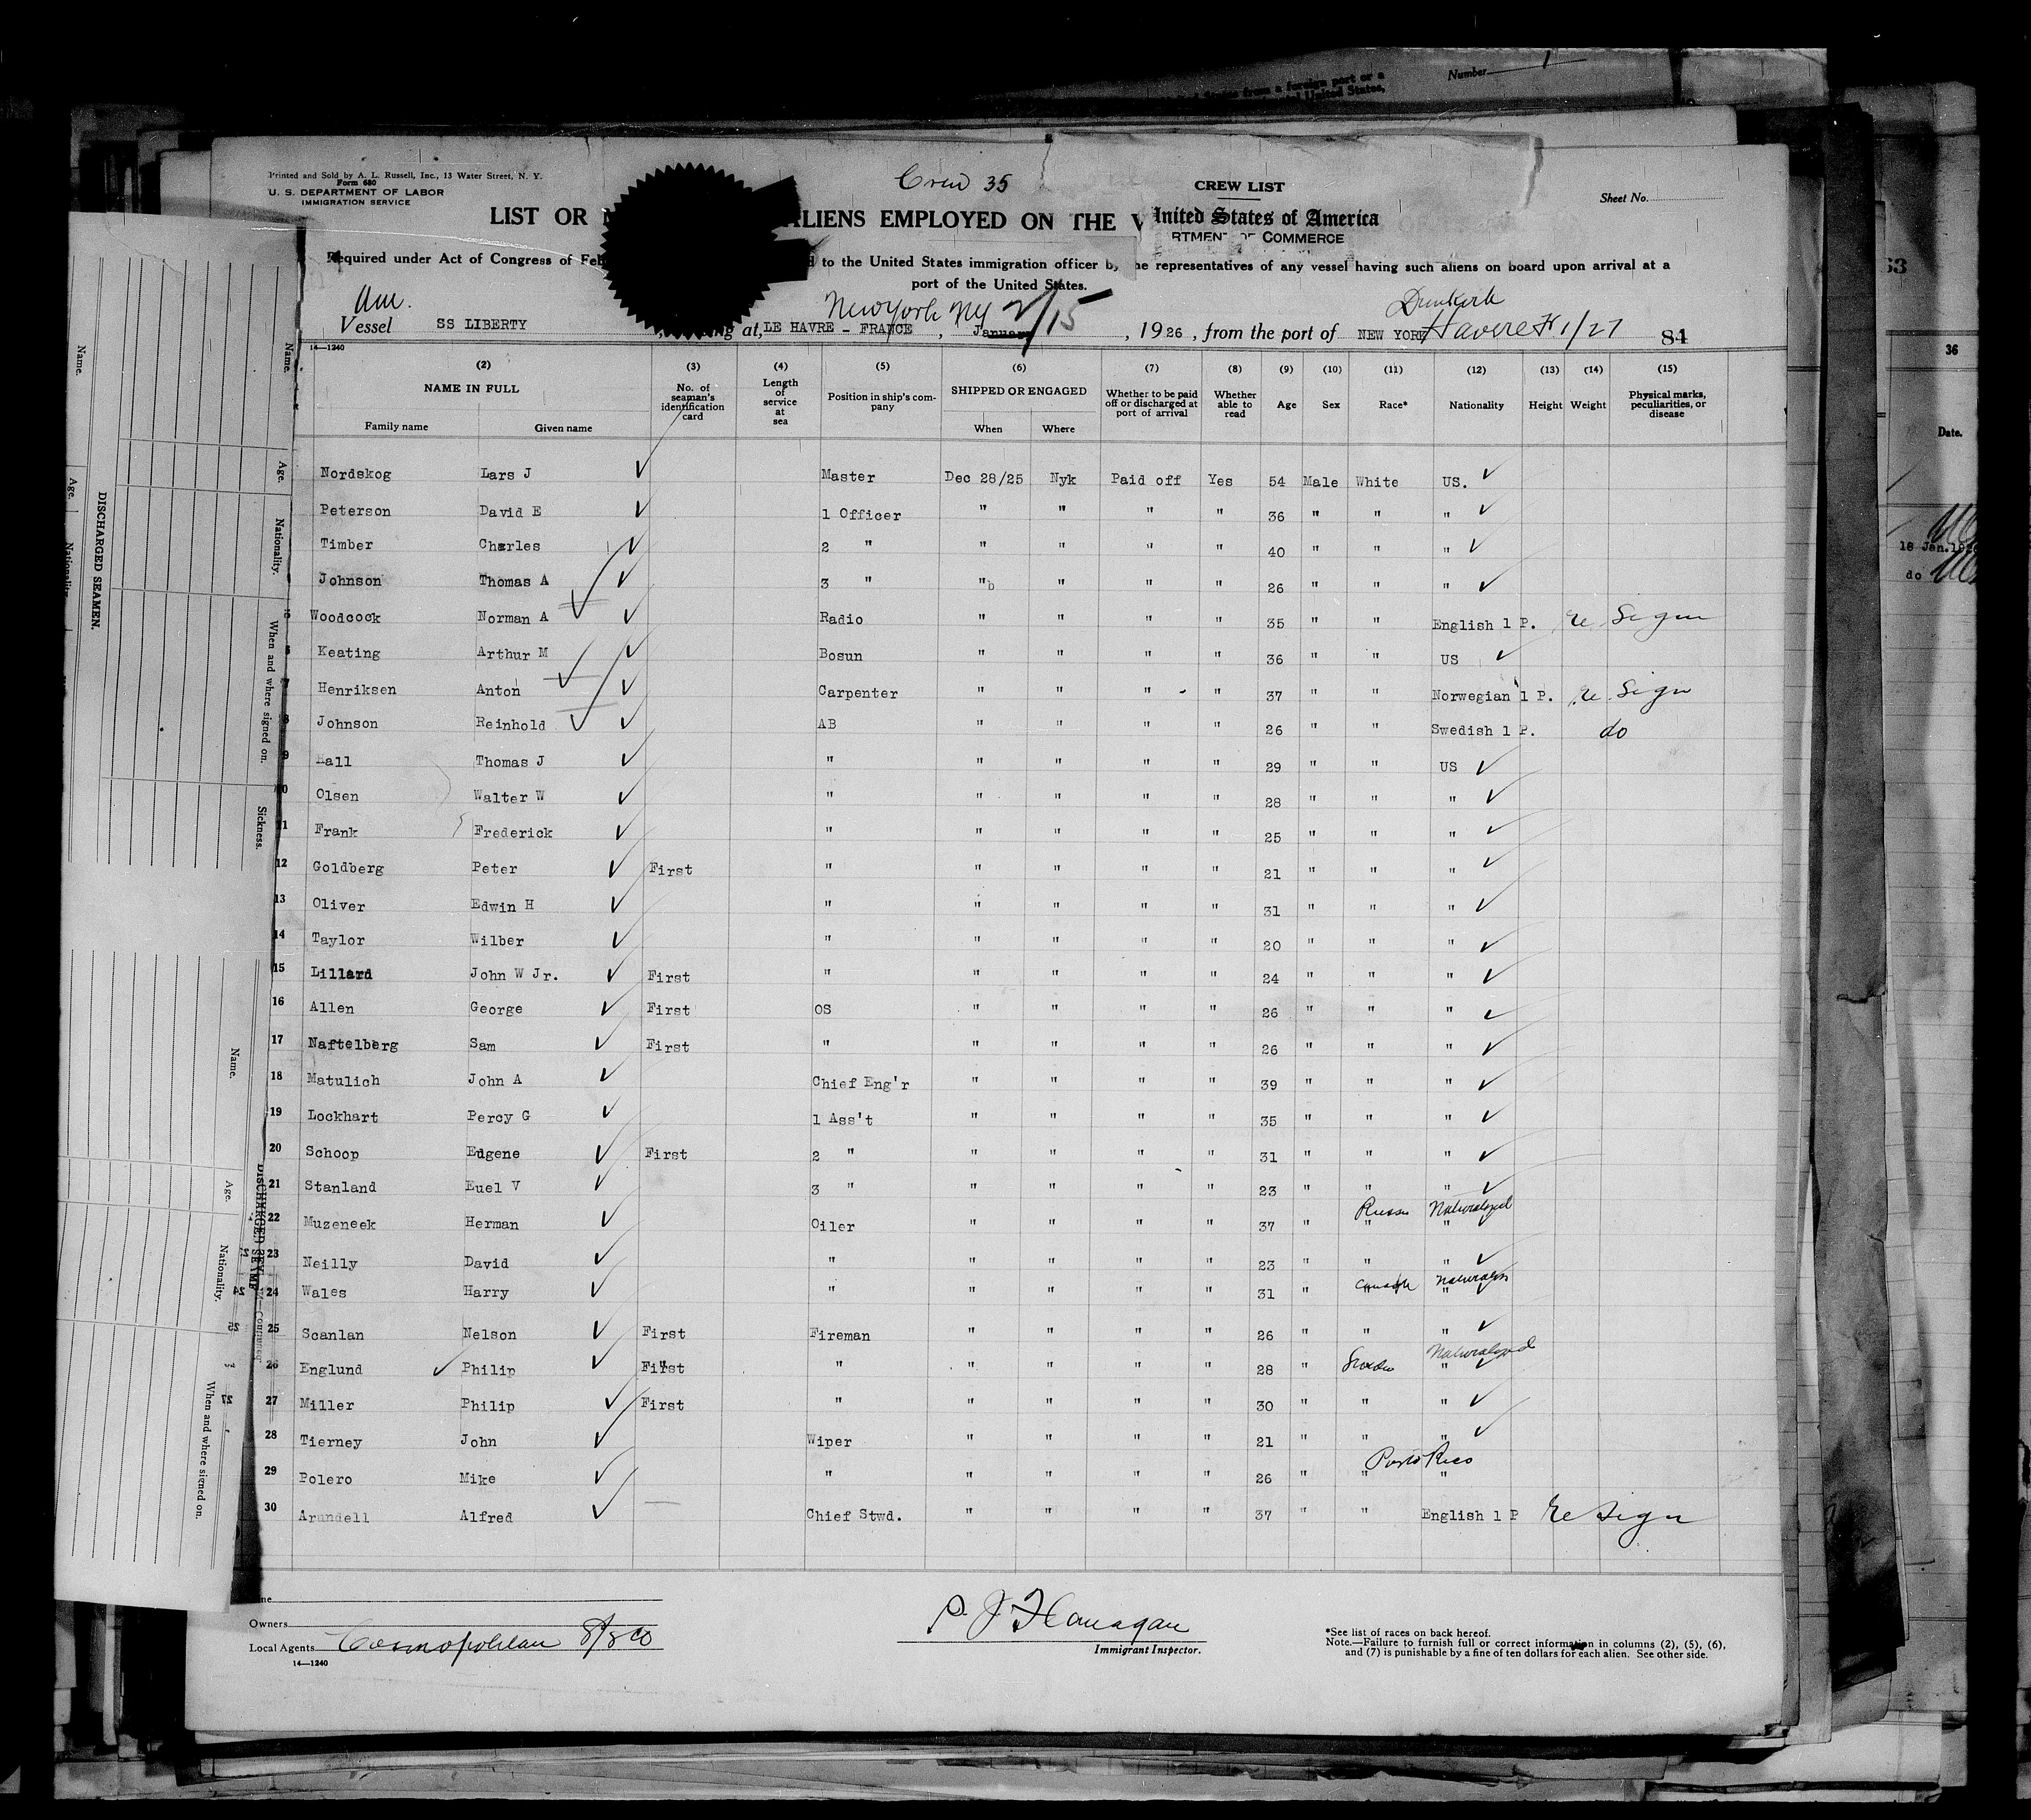 Number 1
Printed and Sold by A. L. Russell, Inc., 13 Water Street, N. Y.
Form 680
U. S. DEPARTMENT OF LABOR
IMMIGRATION SERVICE
Crew 35
CREW LIST
Sheet No.
LIST OR ALIENS EMPLOYED ON THE V
United States of America
RTMENT OF COMMERCE
Required under Act of Congress of Feb to the United States immigration officer by the representatives of any vessel having such aliens on board upon arrival at a
port of the United States.
Am. New York NY 2/15 Dunkirk
Vessel SS LIBERTY at, LE HAVRE - FRANCE , January , 1926 , from the port of NEW YORK Havre Fr 1/27 84
14—1240
(2) (3) (4) (5) (6) (7) (8) (9) (10) (11) (12) (13) (14) (15)
NAME IN FULL No. of seaman's identification card Length of service at sea Position in ship's company SHIPPED OR ENGAGED Whether to be paid off or discharged at port of arrival Whether able to read Age Sex Race* Nationality Height Weight Physical marks, peculiarities, or disease
Family name Given name When Where
Nordskog Lars J Master Dec 28/25 Nyk Paid off Yes 54 Male White US.
Peterson David E 1 Officer " " " " 36 " " "
Timber Charles 2 " " " " " 40 " " "
Johnson Thomas A 3 " " " " " 26 " " "
Woodcock Norman A Radio " " " " 35 " " English 1 P. re Sign
Keating Arthur M Bosun " " " " 36 " " US
Henriksen Anton Carpenter " " " " 37 " " Norwegian 1 P. re Sign
8 Johnson Reinhold AB " " " " 26 " " Swedish 1 P. do
9 Hall Thomas J " " " " " 29 " " US
10 Olsen Walter W " " " " " 28 " " "
11 Frank Frederick " " " " " 25 " " "
12 Goldberg Peter First " " " " " 21 " " "
13 Oliver Edwin H " " " " " 31 " " "
14 Taylor Wilber " " " " " 20 " " "
15 Lillard John W Jr. First " " " " " 24 " " "
16 Allen George First OS " " " " 26 " " "
17 Naftelberg Sam First " " " " " 26 " " "
18 Matulich John A Chief Eng'r " " " " 39 " " "
19 Lockhart Percy G 1 Ass't " " " " 35 " " "
20 Schoop Eugene First 2 " " " " " 31 " " "
21 Stanland Euel V 3 " " " " " 23 " " "
22 Muzeneek Herman Oiler " " " " 37 " Russia " Naturalized "
23 Neilly David " " " " " 23 " " "
24 Wales Harry " " " " " 31 " " "
25 Scanlan Nelson First Fireman " " " " 26 " " "
26 Englund Philip First " " " " " 28 " Sweden Naturalized "
27 Miller Philip First " " " " " 30 " " "
28 Tierney John Wiper " " " " 21 " " "
29 Polero Mike " " " " " 26 " Porto Rico " "
30 Arundell Alfred Chief Stwd. " " " " 37 " " English 1 P Re Sign
Owners
Local Agents Cosmopolitan S/S Co
14—1240
P. J. Flanagan
Immigrant Inspector.
*See list of races on back hereof.
Note.—Failure to furnish full or correct information in columns (2), (5), (6),
and (7) is punishable by a fine of ten dollars for each alien. See other side.
DISCHARGED SEAMEN.
Name.
Age.
Nationality.
When and where signed on.
Sickness.
Name.
Age.
Nationality.
When and where signed on.
36
Date.
18 Jan.192
do